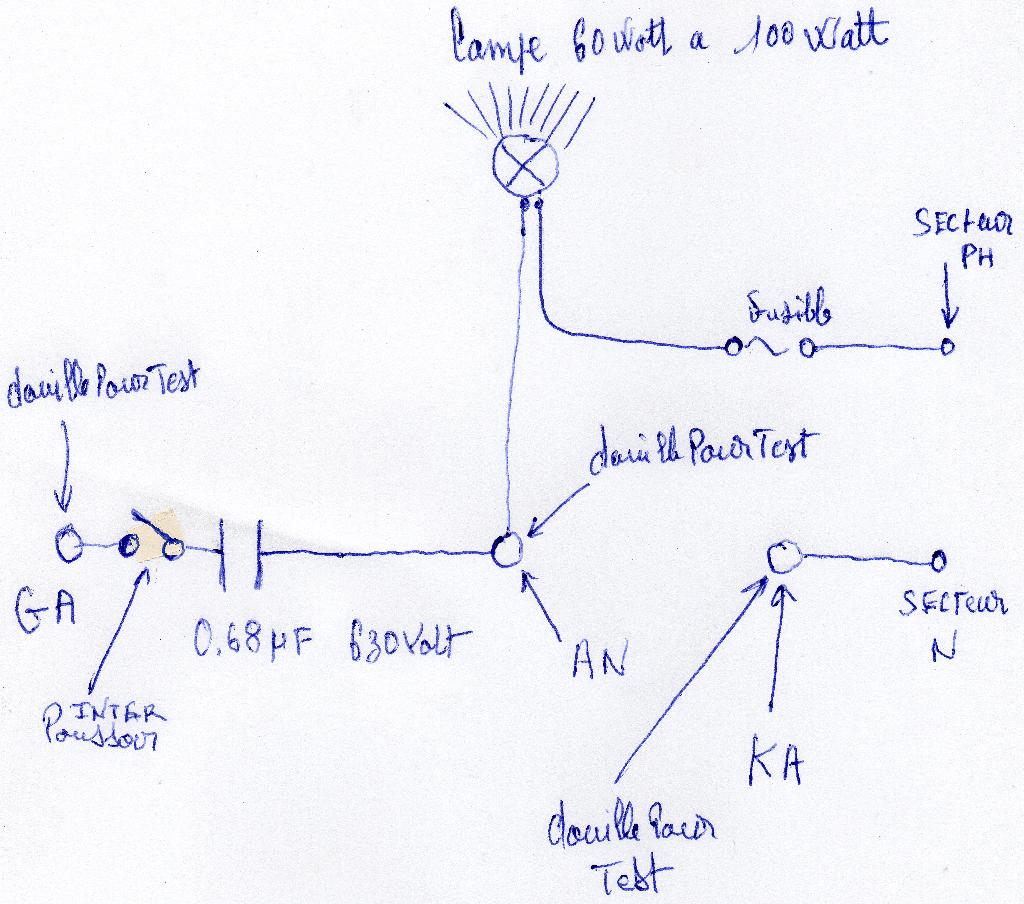 Lampe 60 Watt a 100 Watt
SECteur
PH
fusible
douille Pour Test
douille Pour Test
GA
0.68 µF 630 Volt
AN
SECTeur
N
INTER
Poussoir
KA
douille Pour
Test